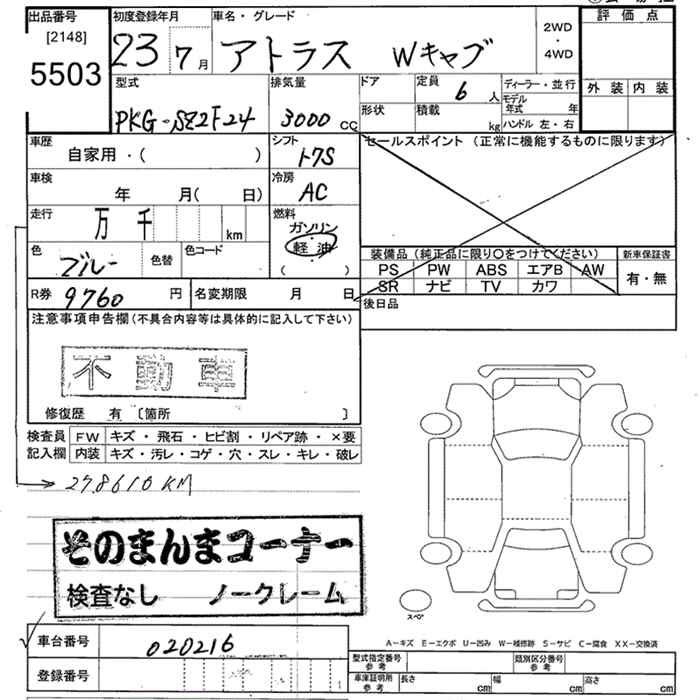 出品番号 初度登録年月 車名・グレード 評価点
[2148] 5503 23年 7月 アトラス Wキャブ 2WD・4WD
型式 排気量 ドア 定員 6人 ディーラー・並行 外装 内装
PKG-SZ2F24 3000CC 形状 積載 kg モデル年式 年 ハンドル 左・右
車歴 自家用・( ) シフト F7S セールスポイント(正常に機能するものに限ります)
車検 年 月( 日) 冷房 AC
走行 万 千 km 燃料 ガソリン・軽油 ( )
色 ブルー 色替 色コード 装備品(純正品に限り○をつけてください) 新車保証書
PS PW ABS エアB AW 有・無
SR ナビ TV カワ
R券 9760円 名変期限 月 日 後日品
注意事項申告欄(不具合内容等は具体的に記入して下さい)
不動車
修復歴 有 〔箇所 〕
検査員 FW キズ・飛石・ヒビ割・リペア跡・×要
記入欄 内装 キズ・汚レ・コゲ・穴・スレ・キレ・破レ
278610KM
そのまんまコーナー
検査なし ノークレーム
スペア
車台番号 020216
A-キズ E-エクボ U-凹み W-補修跡 S-サビ C-腐食 XX-交換済
登録番号 型式指定番号 参考 類別区分番号 参考
車庫証明用 参考 長さ cm 幅 cm 高さ cm